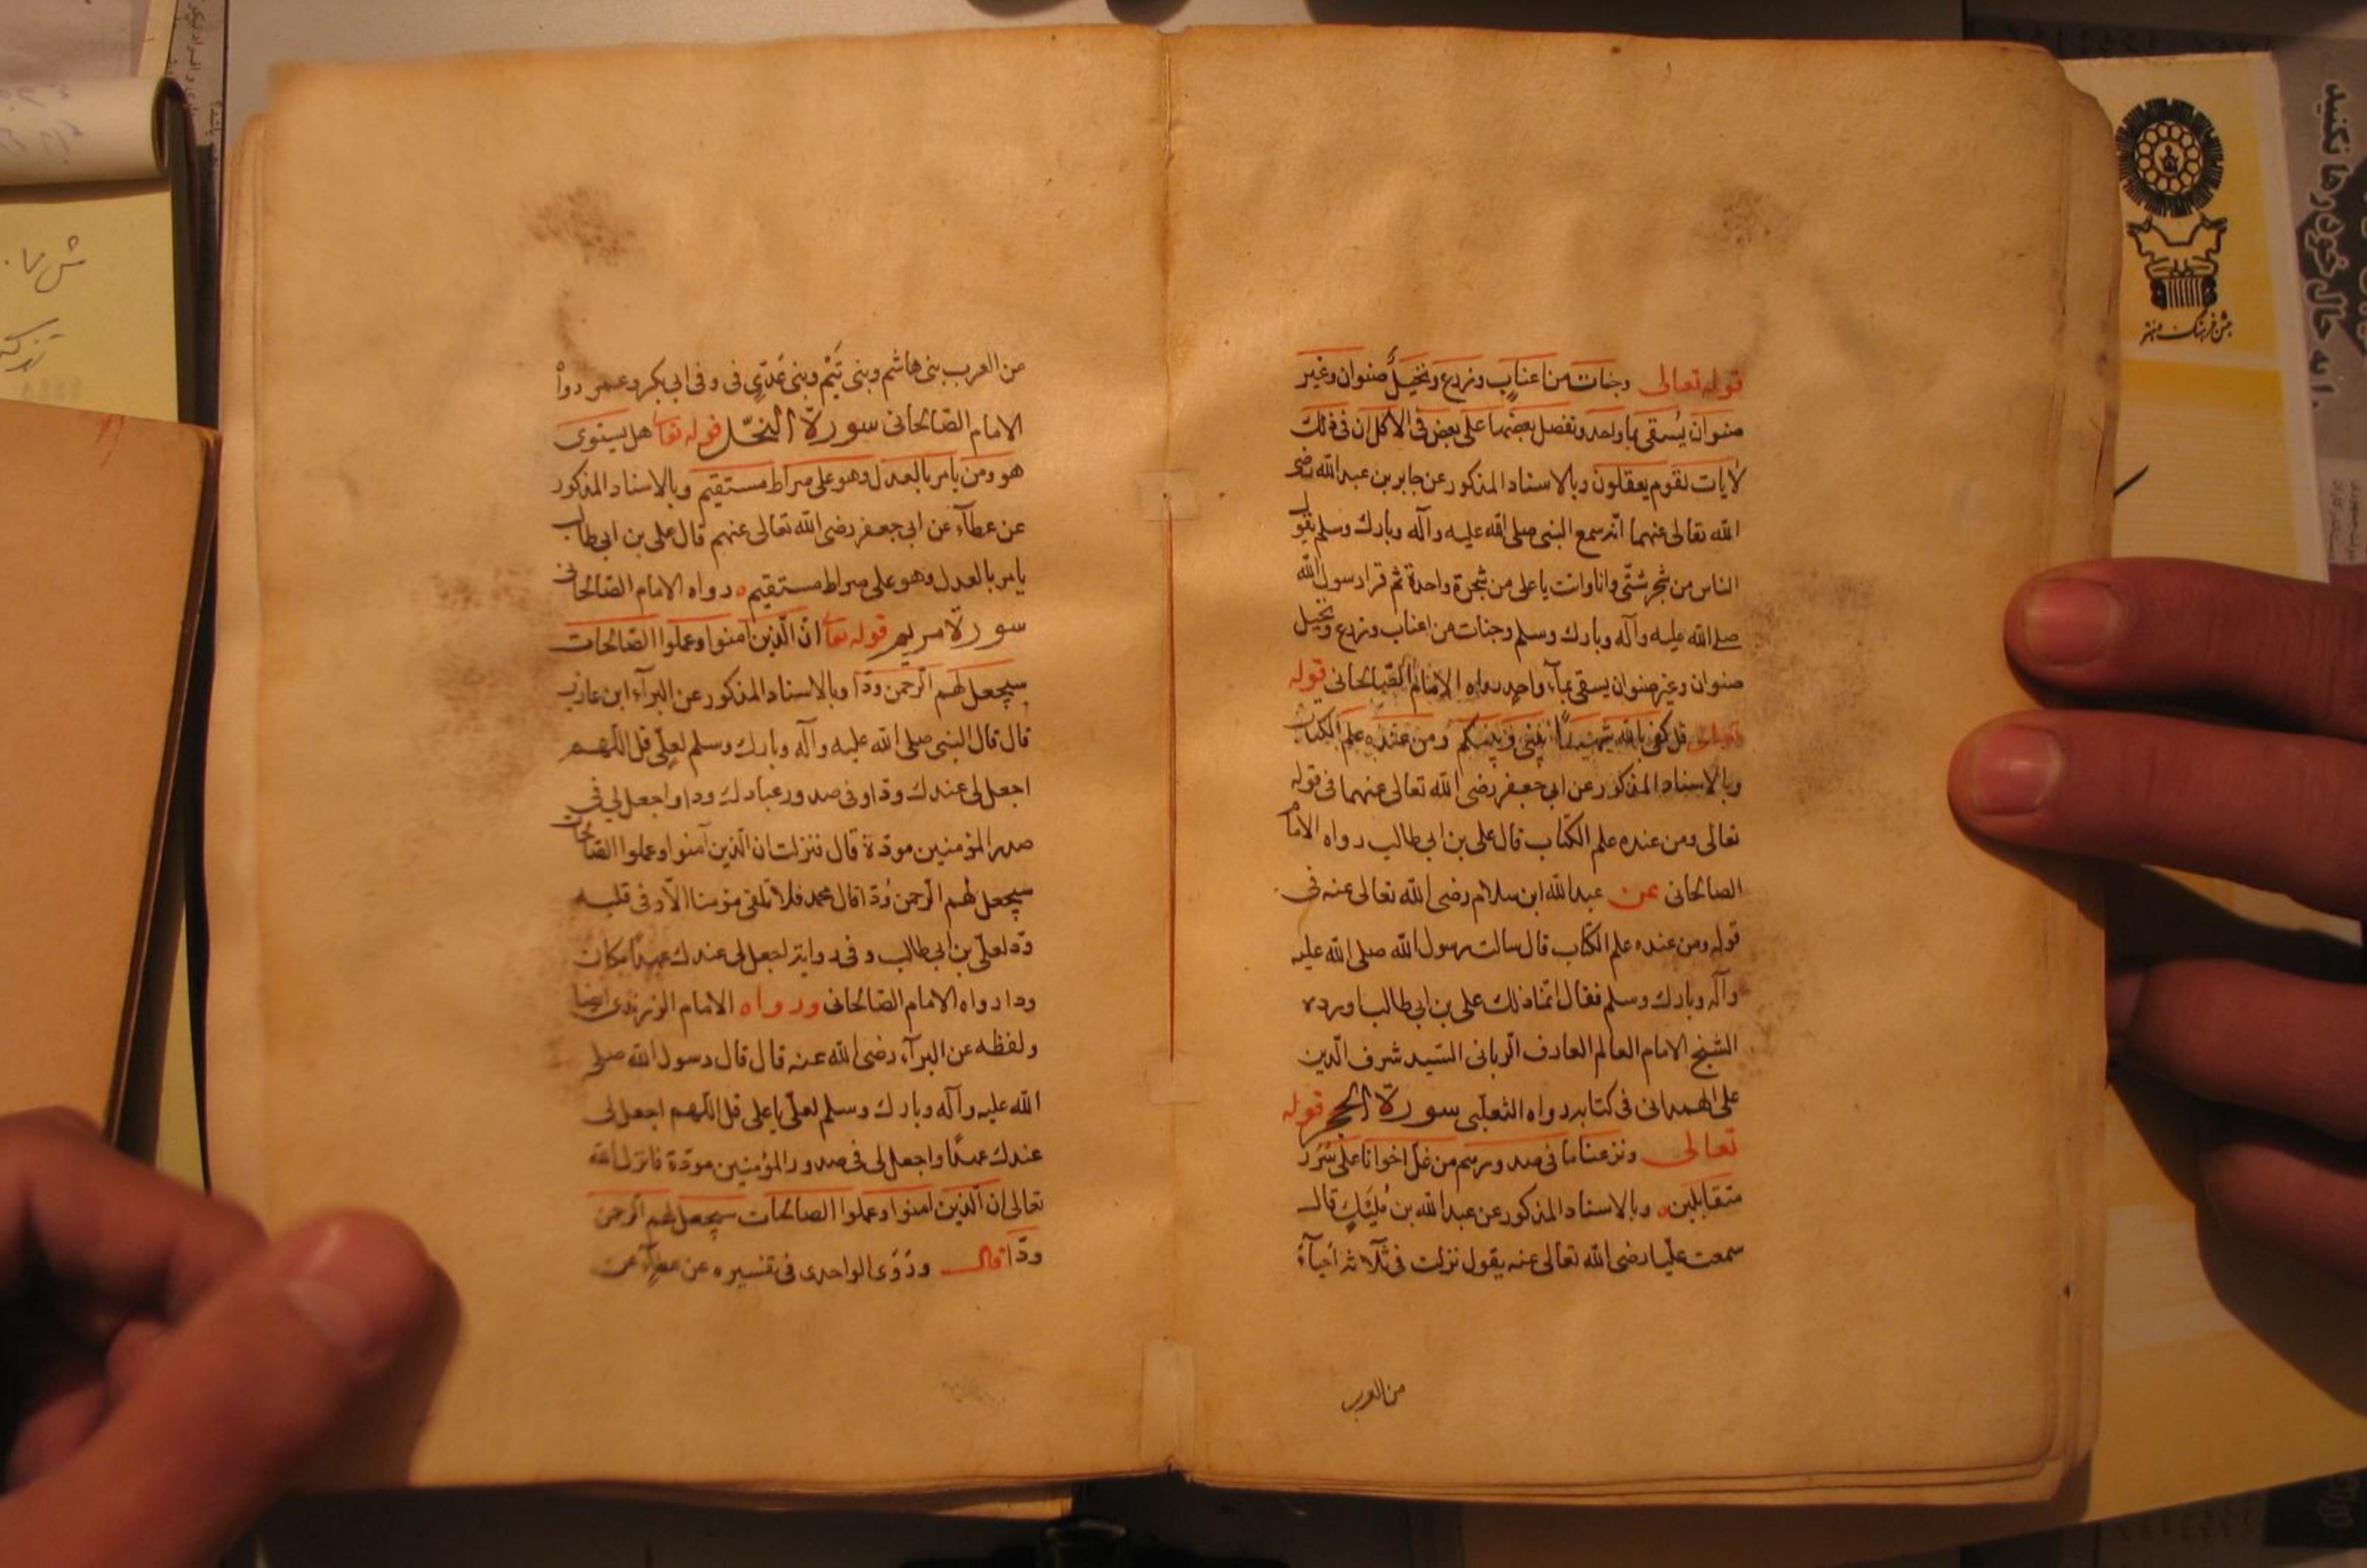 قوله تعالى وجنات من اعناب وزرع ونخيل صنوان وغير
صنوان يسقى بماء واحد ونفضل بعضها على بعض فى الاكل ان فى ذلك
لآيات لقوم يعقلون وبالاسناد المذكور عن جابر بن عبد الله رضى
الله تعالى عنهما انه سمع النبى صلى الله عليه وآله وبارك وسلم يقول
الناس من شجر شتى وانا وانت يا على من شجرة واحدة ثم قرا رسول الله
صلى الله عليه وآله وبارك وسلم وجنات من اعناب وزرع ونخيل
صنوان وغير صنوان يسقى بماء واحد رواه الامام الصالحانى قوله
تعالى قل كفى بالله شهيدا بينى وبينكم ومن عنده علم الكتاب
وبالاسناد المذكور عن ابى جعفر رضى الله تعالى عنهما فى قوله
تعالى ومن عنده علم الكتاب قال على بن ابى طالب رواه الامام
الصالحانى عن عبد الله ابن سلام رضى الله تعالى عنه فى
قوله ومن عنده علم الكتاب قال سالت رسول الله صلى الله عليه
وآله وبارك وسلم فقال انما ذلك على بن ابى طالب اورده
الشيخ الامام العالم العارف الربانى السيد شرف الدين
على الهمدانى فى كتابه رواه الثعلبى سورة الحجر قوله
تعالى ونزعنا ما فى صدورهم من غل اخوانا على سرر
متقابلين وبالاسناد المذكور عن عبد الله بن مليك قال
سمعت عليا رضى الله تعالى عنه يقول نزلت فى ثلاثة احياء
من العرب
من العرب بنى هاشم وبنى تيم وبنى عدى فى وفى ابى بكر وعمر رواه
الامام الصالحانى سورة النحل قوله تعا هل يستوى
هو ومن يامر بالعدل وهو على صراط مستقيم وبالاسناد المذكور
عن عطاء عن ابى جعفر رضى الله تعالى عنهم قال على بن ابى طالب
يامر بالعدل وهو على صراط مستقيم رواه الامام الصالحانى
سورة مريم قوله تعا ان الذين آمنوا وعملوا الصالحات
سيجعل لهم الرحمن ودا وبالاسناد المذكور عن البرآء ابن عازب
قال قال النبى صلى الله عليه وآله وبارك وسلم لعلى قل اللهم
اجعل لى عندك ودا وفى صدور عبادك ودا واجعل لى فى
صدر المؤمنين مودة قال فنزلت ان الذين آمنوا وعملوا الصالحات
سيجعل لهم الرحمن ودا قال محمد فلا تلقى مؤمنا الا وفى قلبه
ود لعلى بن ابى طالب وفى رواية اجعل لى عندك عهدا مكان
ودا رواه الامام الصالحانى ورواه الامام الزرندى ايضا
ولفظه عن البرآء رضى الله عنه قال قال رسول الله صلى
الله عليه وآله وبارك وسلم لعلى يا على قل اللهم اجعل لى
عندك عهدا واجعل لى فى صدور المؤمنين مودة فانزل الله
تعالى ان الذين امنوا وعملوا الصالحات سيجعل لهم الرحمن
ودا قال وروى الواحدى فى تفسيره عن عطاء عن
جشن فرهنگ و هنر